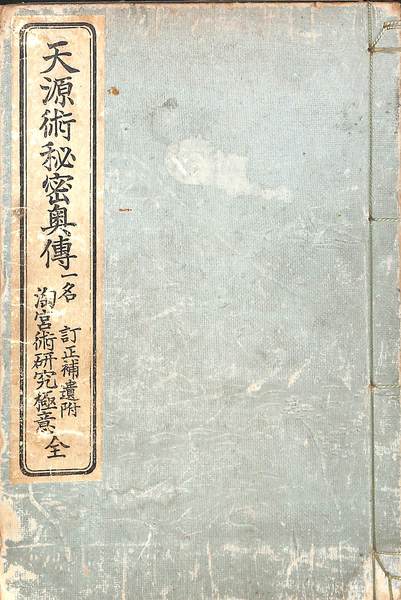 天源術秘密奥傳一名
訂正補遺附
淘宮術研究極意
全